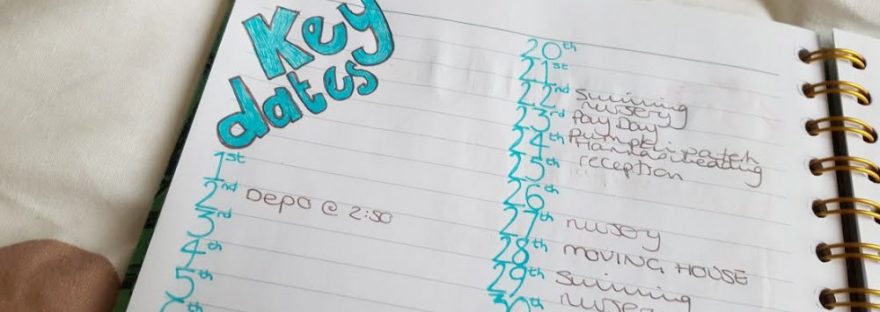 Key
dates
1st
2nd Depo @ 2:50
3rd
4th
5th
20th
21st
22nd Swimming
nursery
23rd Pay Day
24th Pumpkin patch
25th reception
26th
27th nursery
28th MOVING HOUSE
29th Swimming
30th